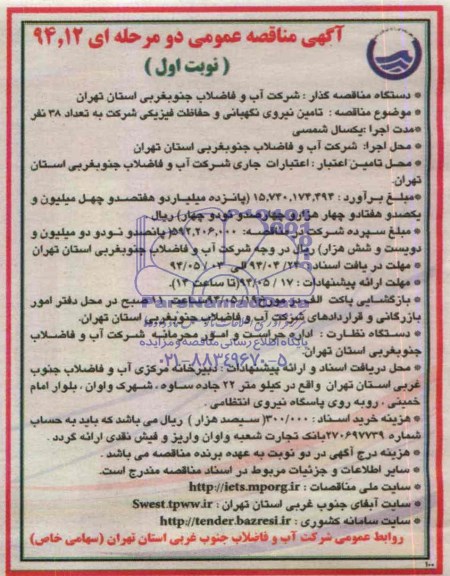 آگهی مناقصه عمومی دو مرحله ای ۹۴,۱۲
( نوبت اول )
● دستگاه مناقصه گذار : شرکت آب و فاضلاب جنوبغربی استان تهران
● موضوع مناقصه : تامین نیروی نگهبانی و حفاظت فیزیکی شرکت به تعداد ۳۸ نفر
● مدت اجرا :یکسال شمسی
● محل اجرا: شرکت آب و فاضلاب جنوبغربی استان تهران
● محل تامین اعتبار : اعتبارات جاری شرکت آب و فاضلاب جنوبغربی استان
تهران.
● مبلغ برآورد : ۱۵,۷۴۰,۱۷۴,۴۹۴ (پانزده میلیاردو هفتصدو چهل میلیون و
یکصدو هفتادو چهار هزارو چهارصدو نودو چهار) ریال
● مبلغ سپرده شرکت در مناقصه: ۵۹۲,۲۰۶,۰۰۰( پانصدو نودو دو میلیون و
دویست و شش هزار) ریال در وجه شرکت آب و فاضلاب جنوبغربی استان تهران
● مهلت دریافت اسناد : الی ۹۴/۰۵/۰۳
● مهلت ارائه پیشنهادات : ۱۷ / ۹۴/۰۵(تا ساعت ۱۳).
● بازگشایی پاکت الف مورخ ساعت صبح در محل دفتر امور
بازرگانی و قراردادهای شرکت آب و فاضلاب جنوبغربی استان تهران.
● دستگاه نظارت : اداره حراست و امور محرمانه شرکت آب و فاضلاب
جنوبغربی استان تهران
پایگاه اطلاع رسانی مناقصه و مزایده
۰۲۱-۸۸۳۴۹۶۷۰-۵
● محل دریافت اسناد و ارائه پیشنهادات : دبیرخانه مرکزی آب و فاضلاب جنوب
غربی استان تهران واقع در کیلو متر ۲۲ جاده ساوه ، شهرک واوان ، بلوار امام
خمینی ، روبه روی پاسگاه نیروی انتظامی .
● هزینه خرید اسناد : ۳۰۰/۰۰۰( سیصد هزار ) ریال می باشد که باید به حساب
شماره ۲۷۰۶۹۷۷۳۹بانک تجارت شعبه واوان واریز و فیش نقدی ارائه گردد .
● هزینه درج آگهی در دو نوبت به عهده برنده مناقصه می باشد .
● سایر اطلاعات و جزئیات مربوط در اسناد مناقصه مندرج است.
● سایت ملی مناقصات : http://iets.mporg.ir
● سایت آبفای جنوب غربی استان تهران : Swest.tpww.ir
● سایت سامانه کشوری : http://tender.bazresi.ir
روابط عمومی شرکت آب و فاضلاب جنوب غربی استان تهران (سهامی خاص)
۱۰۰